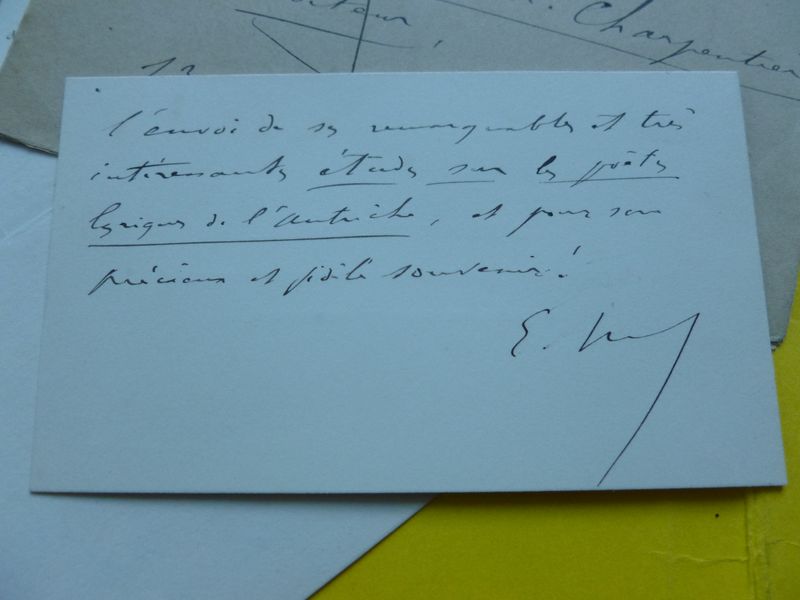 Charpentier
l'envoi de ses remarquables et très
intéressantes études sur les poètes
lyriques de l'Autriche, et pour son
précieux et fidèle souvenir!
E.